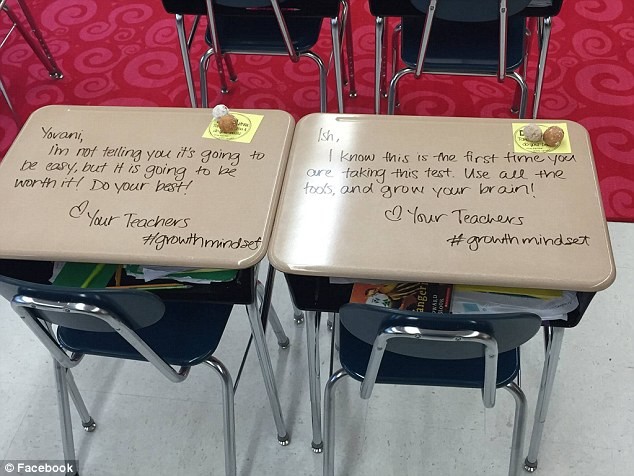 Yovani,
I'm not telling you it's going to
be easy, but it is going to be
worth it! Do your best!
♡ Your Teachers
#growthmindset
Ish,
I know this is the first time you
are taking this test. Use all the
tools, and grow your brain!
♡ Your Teachers
#growthmindset
© Facebook